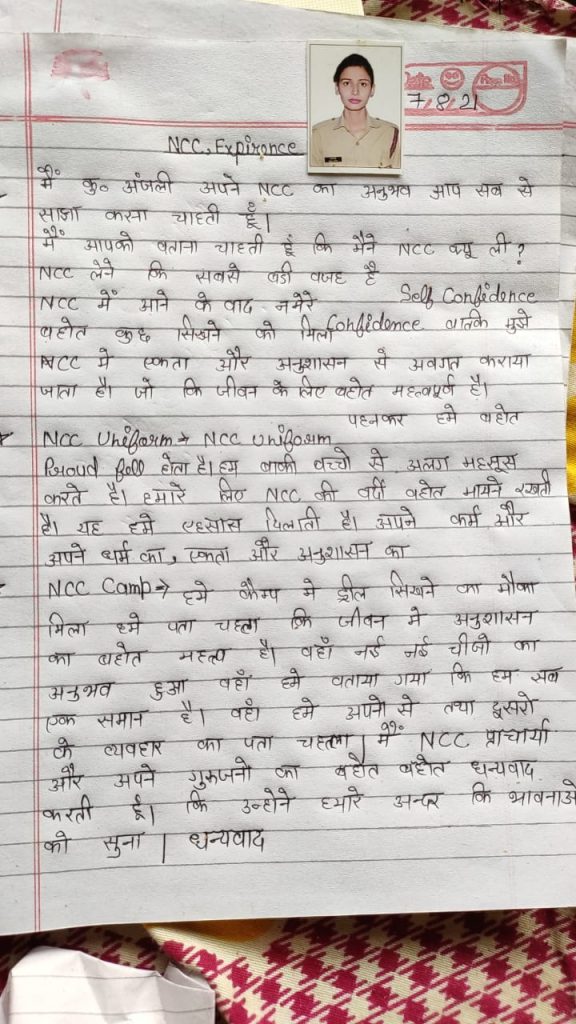 7.8.21
NCC, Expirence
मैं कु० अंजली अपने NCC का अनुभव आप सब से
साझा करना चाहती हूँ।
मैं आपको बताना चाहती हूं कि मैने NCC क्यू ली?
NCC लेने कि सबसे बडी वजह है
Self Confidence
NCC में आने के बाद न मेरे
Confidence बल्कि मुझे
बहोत कुछ सिखने को मिला
NCC मे एकता और अनुशासन से अवगत कराया
जाता है। जो कि जीवन के लिए बहोत महत्वपूर्ण है।
पहनकर हमे बहोत
NCC Uniform → NCC Uniform
Proud fell होता है। हम बाकी बच्चो से अलग महसूस
करते है। हमारे लिए NCC की वर्दी बहोत मायने रखती
है। यह हमे एहसास दिलाती है। अपने कर्म और
अपने धर्म का, एकता और अनुशासन का
NCC Camp ⇒ हमे कैम्प मे ड्रील सिखने का मौका
मिला हमे पता चहला कि जीवन मे अनुशासन
का बहोत महत्व है। वहाँ नई नई चीजो का
अनुभव हुआ वहाँ हमे बताया गया कि हम सब
एक समान है। वहाँ हमे अपने से तथा दुसरो
के व्यवहार का पता चहला। मैं NCC प्राचार्या
और अपने गुरुजनो का बहोत बहोत धन्यवाद
करती हूँ। कि उन्होने हमारे अन्दर कि भावनाओ
को सुना। धन्यवाद